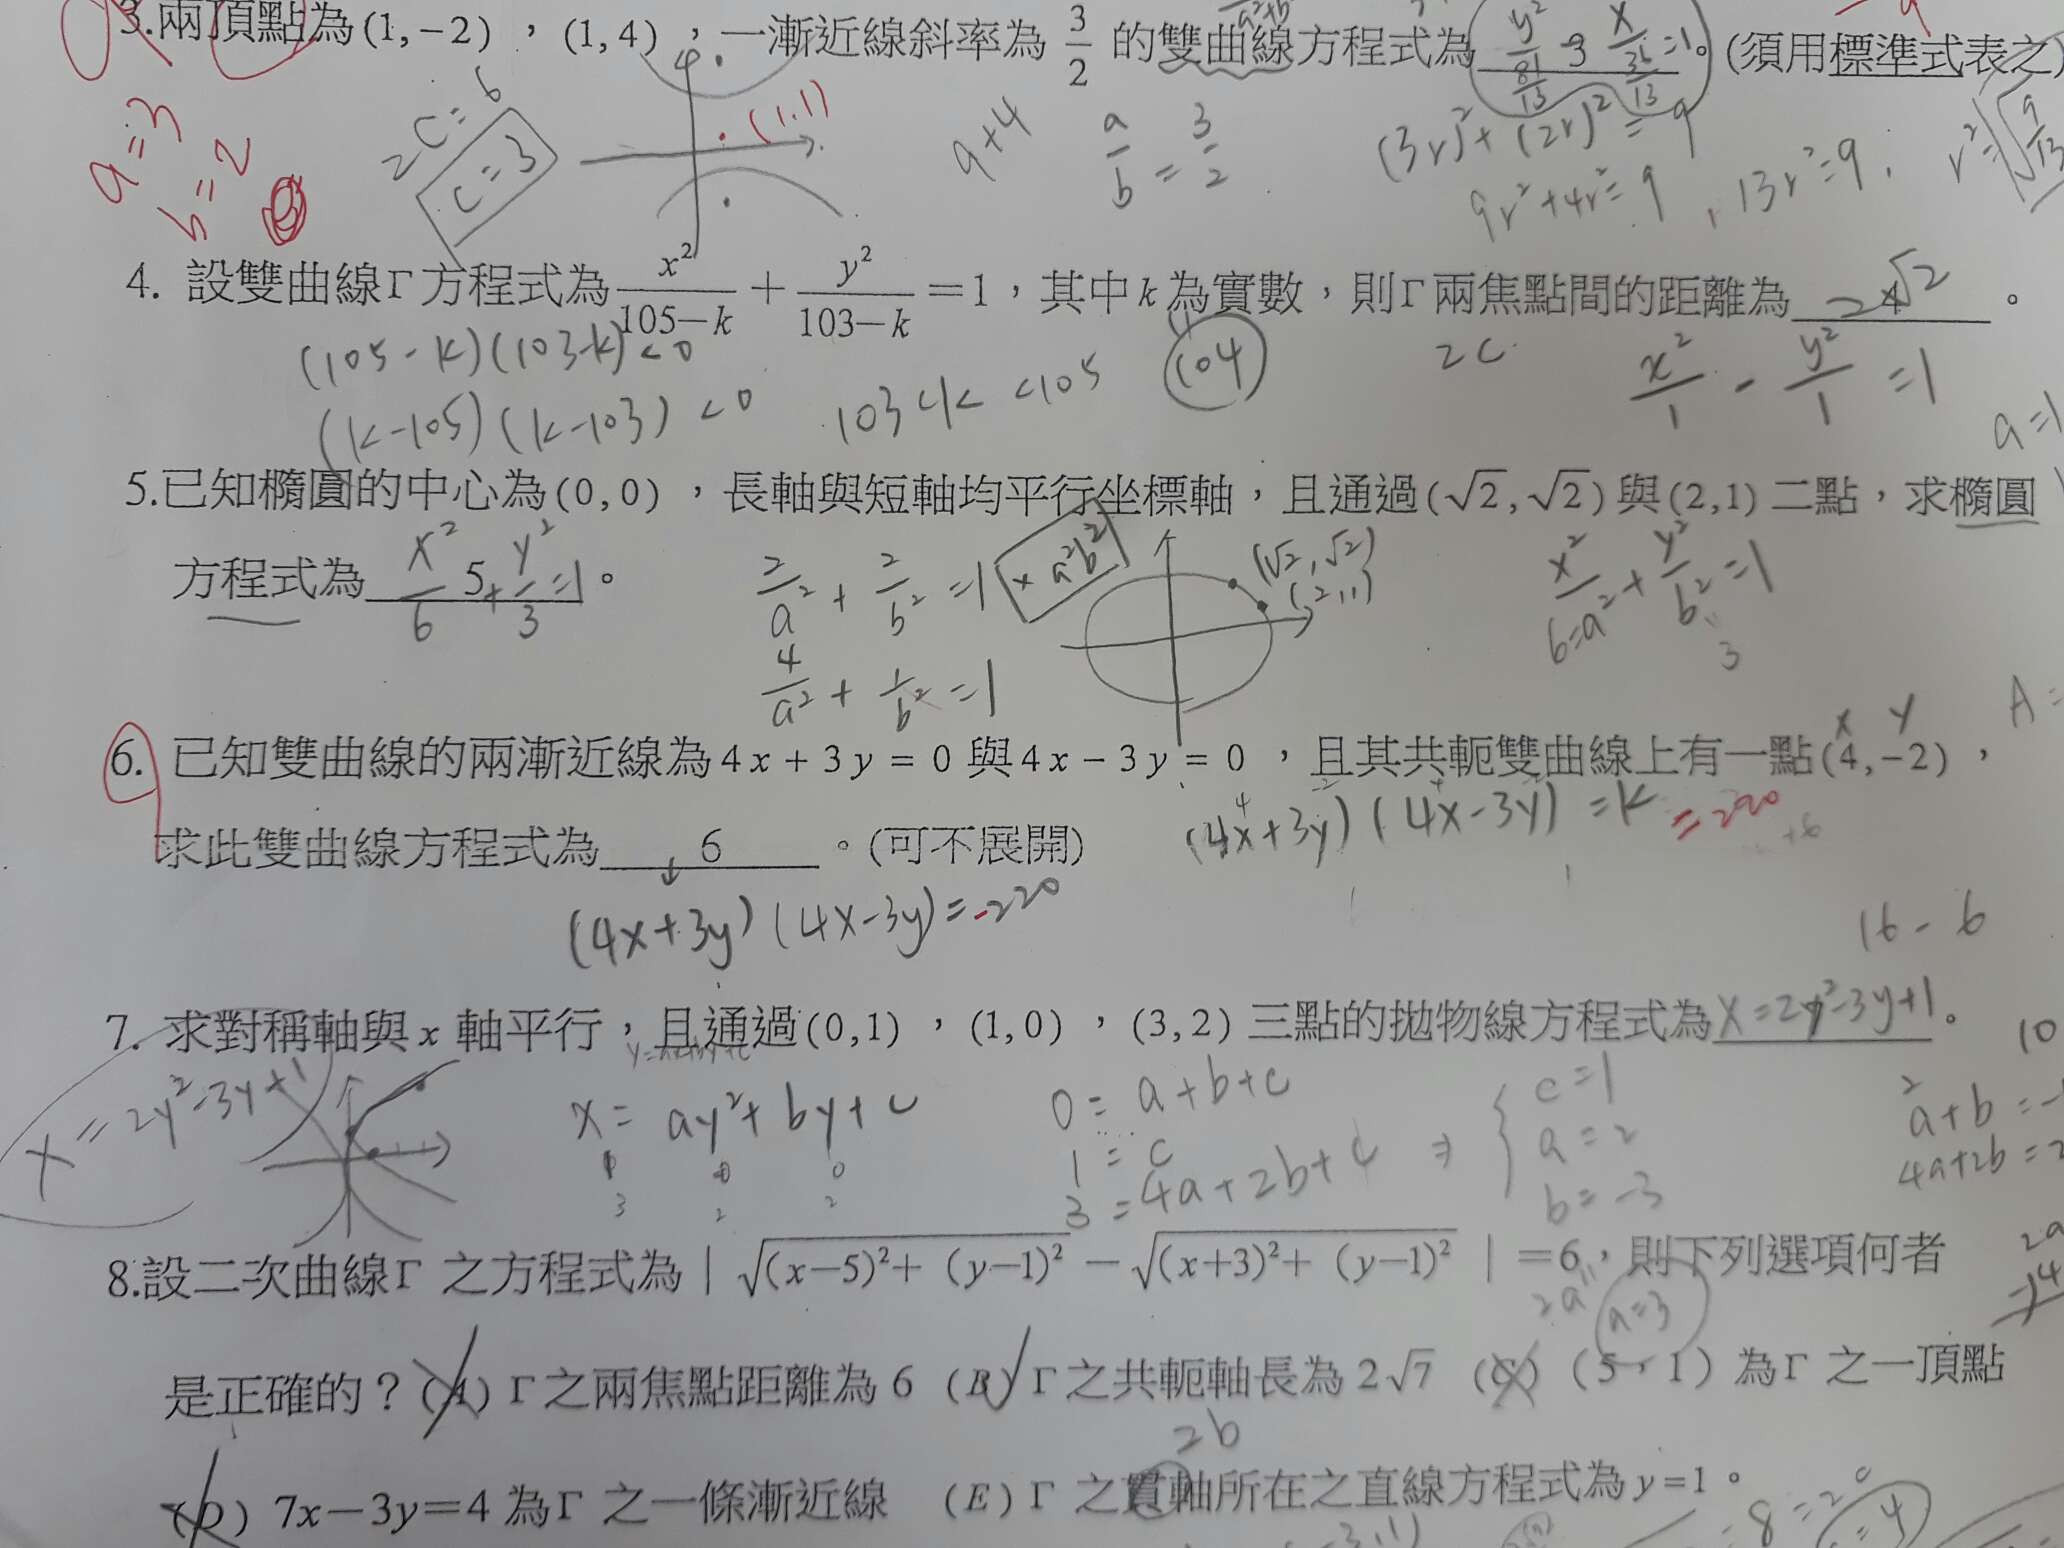 3.兩頂點為(1,−2)，(1,4)，一漸近線斜率為 3/2 的雙曲線方程式為 3 。(須用標準式表之)
y²/(81/13) − x/(36/13) =1
a=3
b=2
2C=6
C=3
(1,1)
9+4
a/b = 3/2
(3r)²+(2r)²=9
9r²+4r²=9 , 13r²=9 ,
r²=9/13
4. 設雙曲線Γ方程式為 x²/(105−k) + y²/(103−k) =1，其中k為實數，則Γ兩焦點間的距離為 4 。
2√2
(105-k)(103-k)<0
(k-105)(k-103)<0
103<k<105
104
2C
x²/1 - y²/1 =1
a=1
5.已知橢圓的中心為(0,0)，長軸與短軸均平行坐標軸，且通過(√2,√2)與(2,1)二點，求橢圓
方程式為 5 。
x²/6 + y²/3 =1
2/a² + 2/b² =1
× a²b²
4/a² + 1/b² =1
(√2,√2)
(2,1)
x²/a² + y²/b² =1
6=a²
3
A=
6. 已知雙曲線的兩漸近線為4x+3y = 0 與4x−3y = 0，且其共軛雙曲線上有一點(4,−2)，
x y
求此雙曲線方程式為 6 。(可不展開)
(4x+3y)(4x-3y)=k =220
(4x+3y)(4x-3y)=-220
16-6
7. 求對稱軸與x 軸平行，且通過(0,1)，(1,0)，(3,2) 三點的拋物線方程式為 x=2y²-3y+1 。
x=2y²-3y+1
x= ay²+by+c
0= a+b+c
1=c
3=4a+2b+c
⇒ { c=1
a=2
b=-3
10
a+b=-
4a+2b=2
8.設二次曲線Γ 之方程式為 | √((x−5)²+ (y−1)²) − √((x+3)²+ (y−1)²) | =6，則下列選項何者
2a
a=3
是正確的？(A) Γ之兩焦點距離為 6 (B) Γ之共軛軸長為 2√7 (C) (5，1) 為Γ 之一頂點
2b
(D) 7x−3y=4 為Γ 之一條漸近線 (E) Γ 之貫軸所在之直線方程式為 y=1。